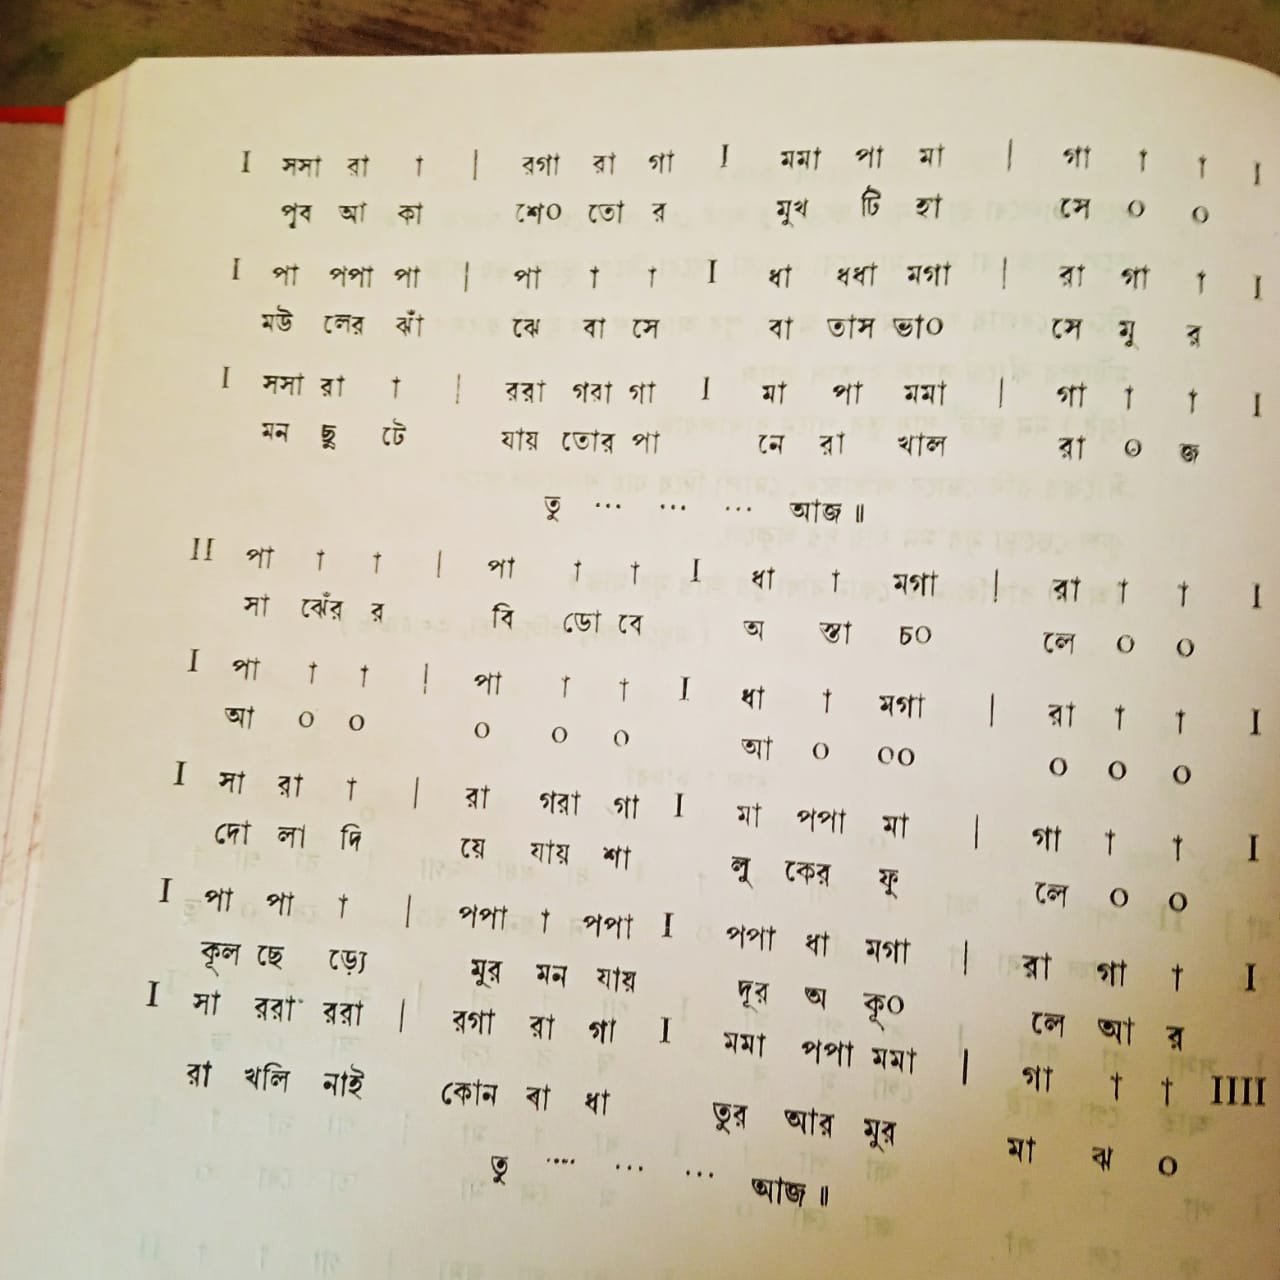 I সসা রা † | রগা রা গা I মমা পা মা | গা † † I
পূব আ কা শে০ তো র মুখ টি হা সে ০ ০
I পা পপা পা | পা † † I ধা ধধা মগা | রা গা † I
মউ লের ঝাঁ ঝে বা সে বা তাস ভা০ সে মু র
I সসা রা † | ররা গরা গা I মা পা মমা | গা † † I
মন ছু টে যায় তোর পা নে রা খাল রা ০ জ
তু ... ... ... আজ ॥
II পা † † | পা † † I ধা † মগা | রা † † I
সা ঝেঁর র বি ডো বে অ স্তা চ০ লে ০ ০
I পা † † | পা † † I ধা † মগা | রা † † I
আ ০ ০ ০ ০ ০ আ ০ ০০ ০ ০ ০
I সা রা † | রা গরা গা I মা পপা মা | গা † † I
দো লা দি য়ে যায় শা লু কের ফু লে ০ ০
I পা পা † | পপা † পপা I পপা ধা মগা | রা গা † I
কূল ছে ড়্যে মূর মন যায় দূর অ কূ০ লে আ র
I সা ররা ররা | রগা রা গা I মমা পপা মমা | গা † † IIII
রা খলি নাই কোন বা ধা তুর আর মূর মা ঝ ০
তু .... ... ... আজ ॥